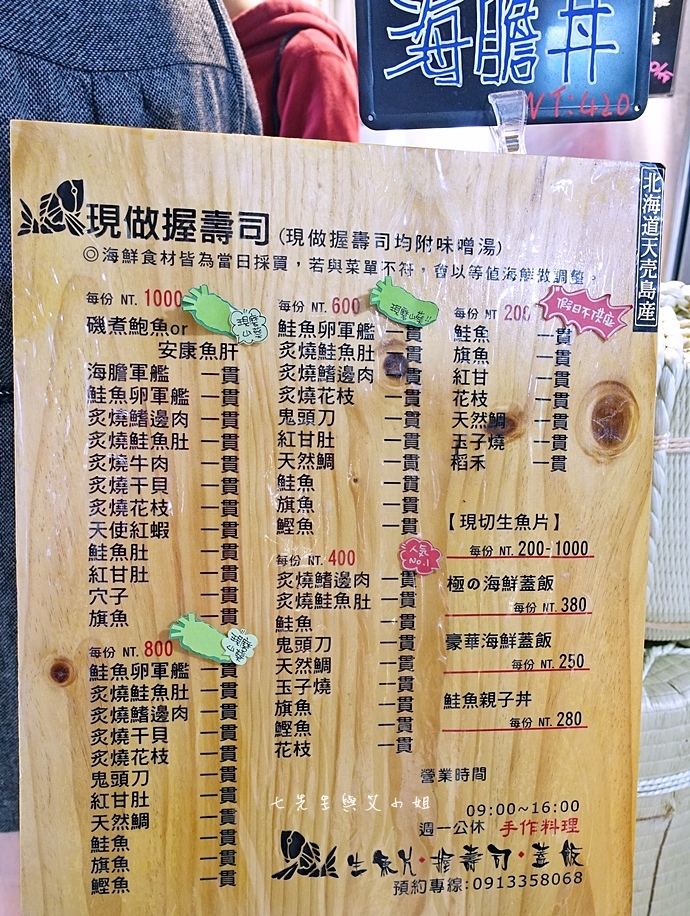 海膽丼
NT:420
北海道天売島産
現做握壽司 (現做握壽司均附味噌湯)
◎海鮮食材皆為當日採買，若與菜單不符，會以等值海鮮做調整。
每份 NT. 1000
現磨山葵
磯煮鮑魚or
安康魚肝
海膽軍艦 一貫
鮭魚卵軍艦 一貫
炙燒鰭邊肉 一貫
炙燒鮭魚肚 一貫
炙燒牛肉 一貫
炙燒干貝 一貫
炙燒花枝 一貫
天使紅蝦 一貫
鮭魚肚 一貫
紅甘肚 一貫
穴子 一貫
旗魚 一貫
每份 NT. 800
鮭魚卵軍艦 一貫
炙燒鮭魚肚 一貫
炙燒鰭邊肉 一貫
炙燒干貝 一貫
炙燒花枝 一貫
鬼頭刀 一貫
紅甘肚 一貫
天然鯛 一貫
鮭魚 一貫
旗魚 一貫
鰹魚 一貫
每份 NT. 600
現磨山葵
鮭魚卵軍艦 一貫
炙燒鮭魚肚 一貫
炙燒鰭邊肉 一貫
炙燒花枝 一貫
鬼頭刀 一貫
紅甘肚 一貫
天然鯛 一貫
鮭魚 一貫
旗魚 一貫
鰹魚 一貫
每份 NT. 400
人氣 No.1
炙燒鰭邊肉 一貫
炙燒鮭魚肚 一貫
鮭魚 一貫
鬼頭刀 一貫
天然鯛 一貫
玉子燒 一貫
旗魚 一貫
鰹魚 一貫
花枝 一貫
每份 NT 200
假日不供應
鮭魚 一貫
旗魚 一貫
紅甘 一貫
花枝 一貫
天然鯛 一貫
玉子燒 一貫
稻禾 一貫
【現切生魚片】
每份 NT. 200-1000
極の海鮮蓋飯
每份 NT. 380
豪華海鮮蓋飯
每份 NT. 250
鮭魚親子丼
每份 NT. 280
營業時間
09:00~16:00
週一公休 手作料理
生魚片・握壽司・蓋飯
預約專線:0913358068
七先生與艾小姐